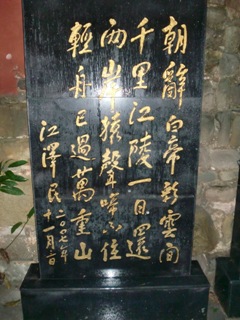 朝辭白帝彩雲間
千里江陵一日還
兩岸猿聲啼不住
輕舟已過萬重山
江澤民
二〇〇七年
十一月一日